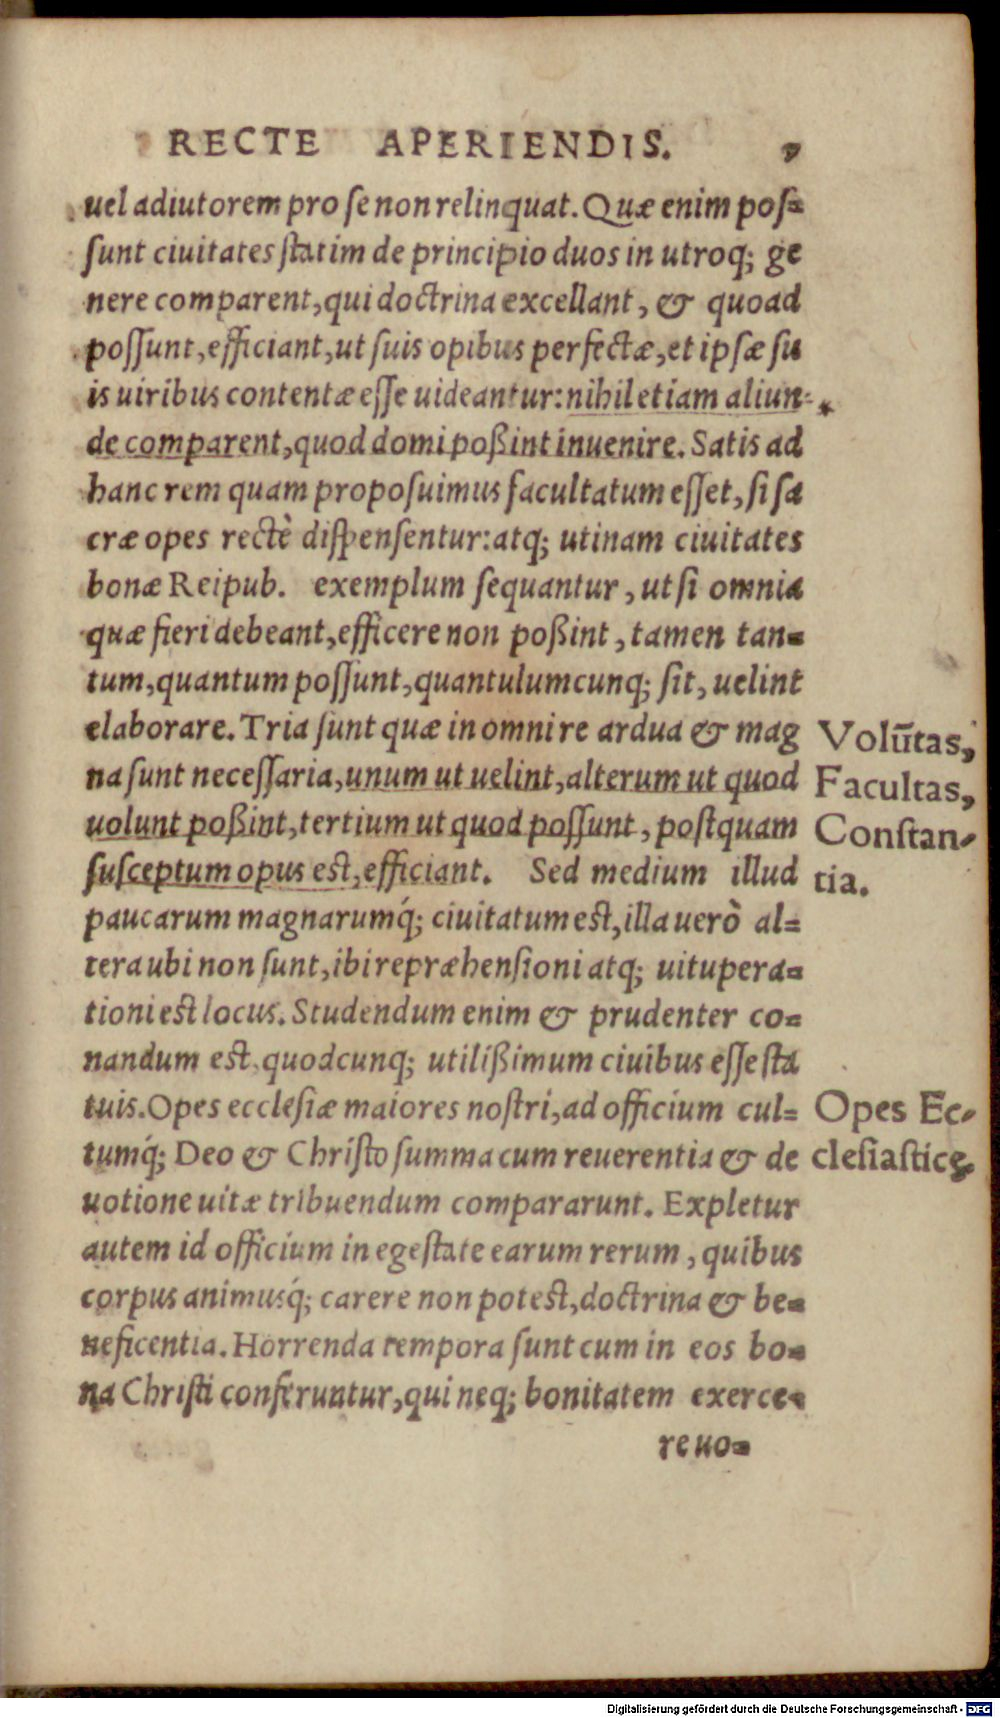 RECTE APERIENDIS. 7
uel adiutorem pro se non relinquat. Quæ enim pos=
sunt ciuitates statim de principio duos in utroq; ge
nere comparent, qui doctrina excellant, & quoad
possunt, efficiant, ut suis opibus perfectæ, et ipsæ su
is uiribus contentæ esse uideantur: nihil etiam aliun=
de comparent, quod domi poßint inuenire. Satis ad
hanc rem quam proposuimus facultatum esset, si sa
cræ opes rectè dispensentur: atq; utinam ciuitates
bonæ Reipub. exemplum sequantur, ut si omnia
quæ fieri debeant, efficere non poßint, tamen tan=
tum, quantum possunt, quantulumcunq; sit, uelint
elaborare. Tria sunt quæ in omni re ardua & mag
na sunt necessaria, unum ut uelint, alterum ut quod
uolunt poßint, tertium ut quod possunt, postquam
susceptum opus est, efficiant. Sed medium illud
paucarum magnarumq́; ciuitatum est, illa uerò al=
tera ubi non sunt, ibi repræhensioni atq; uitupera=
tioni est locus. Studendum enim & prudenter co=
nandum est, quodcunq; utilißimum ciuibus esse sta
tuis. Opes ecclesiæ maiores nostri, ad officium cul=
tumq́; Deo & Christo summa cum reuerentia & de
uotione uitæ tribuendum compararunt. Expletur
autem id officium in egestate earum rerum, quibus
corpus animusq́; carere non potest, doctrina & be=
neficentia. Horrenda tempora sunt cum in eos bo=
na Christi conferuntur, qui neq; bonitatem exerce=
re uo=
Volūtas,
Facultas,
Constan-
tia.
Opes Ec-
clesiasticę.
Digitalisierung gefördert durch die Deutsche Forschungsgemeinschaft - DFG